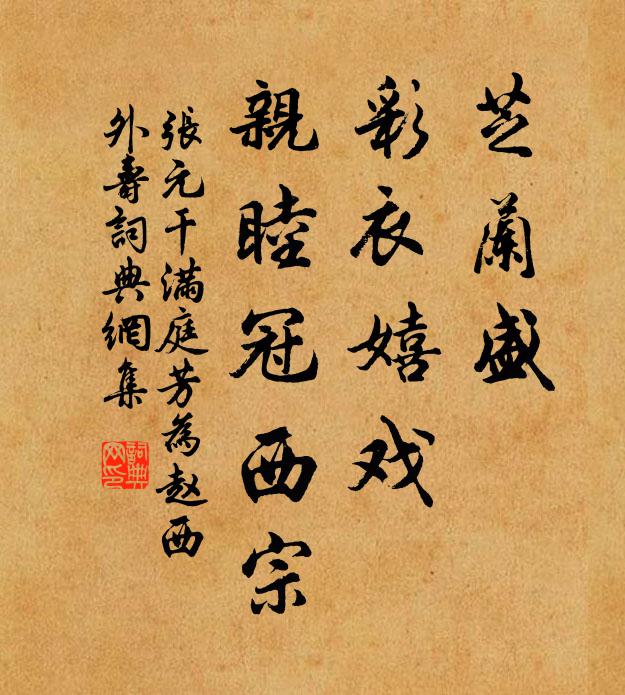 芝蘭盛
彩衣嬉戏
親睦冠西宗
張元干满庭芳為赵西
外壽詞典網集
詞典
网印